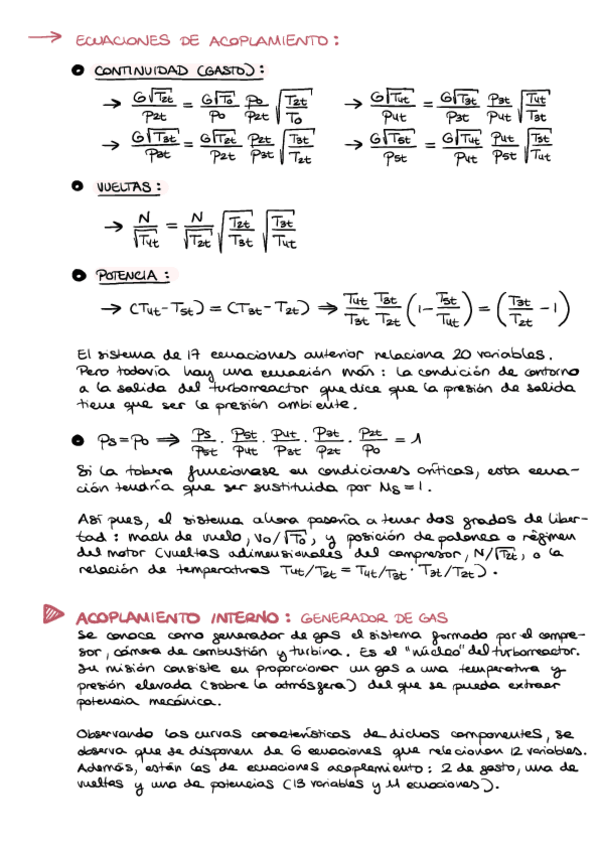 → ECUACIONES DE ACOPLAMIENTO:
• CONTINUIDAD (GASTO):
→ G√T2t/P2t = G√T0/P0 P0/P2t √(T2t/T0) → G√T4t/P4t = G√T3t/P3t P3t/P4t √(T4t/T3t)
→ G√T3t/P3t = G√T2t/P2t P2t/P3t √(T3t/T2t) → G√T5t/P5t = G√T4t/P4t P4t/P5t √(T5t/T4t)
• VUELTAS:
→ N/√T4t = N/√T2t √(T2t/T3t) √(T3t/T4t)
• POTENCIA:
→ (T4t-T5t) = (T3t-T2t) ⇒ T4t/T3t T3t/T2t (1-T5t/T4t) = (T3t/T2t -1)
El sistema de 17 ecuaciones anterior relaciona 20 variables.
Pero todavía hay una ecuación más: la condición de contorno
a la salida del turborreactor que dice que la presión de salida
tiene que ser la presión ambiente.
• Ps=P0 ⇒ Ps/P5t · P5t/P4t · P4t/P3t · P3t/P2t · P2t/P0 = 1
Si la tobera funcionase en condiciones críticas, esta ecua-
ción tendría que ser sustituida por Ms=1.
Así pues, el sistema ahora pasaría a tener dos grados de liber-
tad: mach de vuelo, V0/√T0, y posición de palanca o régimen
del motor (vueltas adimensionales del compresor, N/√T2t, o la
relación de temperaturas T4t/T2t = T4t/T3t · T3t/T2t).
ACOPLAMIENTO INTERNO: GENERADOR DE GAS
Se conoce como generador de gas el sistema formado por el compre-
sor, cámara de combustión y turbina. Es el "núcleo" del turborreactor.
Su misión consiste en proporcionar un gas a una temperatura y
presión elevada (sobre la atmósfera) del que se pueda extraer
potencia mecánica.
Observando las curvas características de dichos componentes, se
observa que se disponen de 6 ecuaciones que relacionan 12 variables.
Además, están las de ecuaciones acoplamiento: 2 de gasto, una de
vueltas y una de potencias (13 variables y 11 ecuaciones).